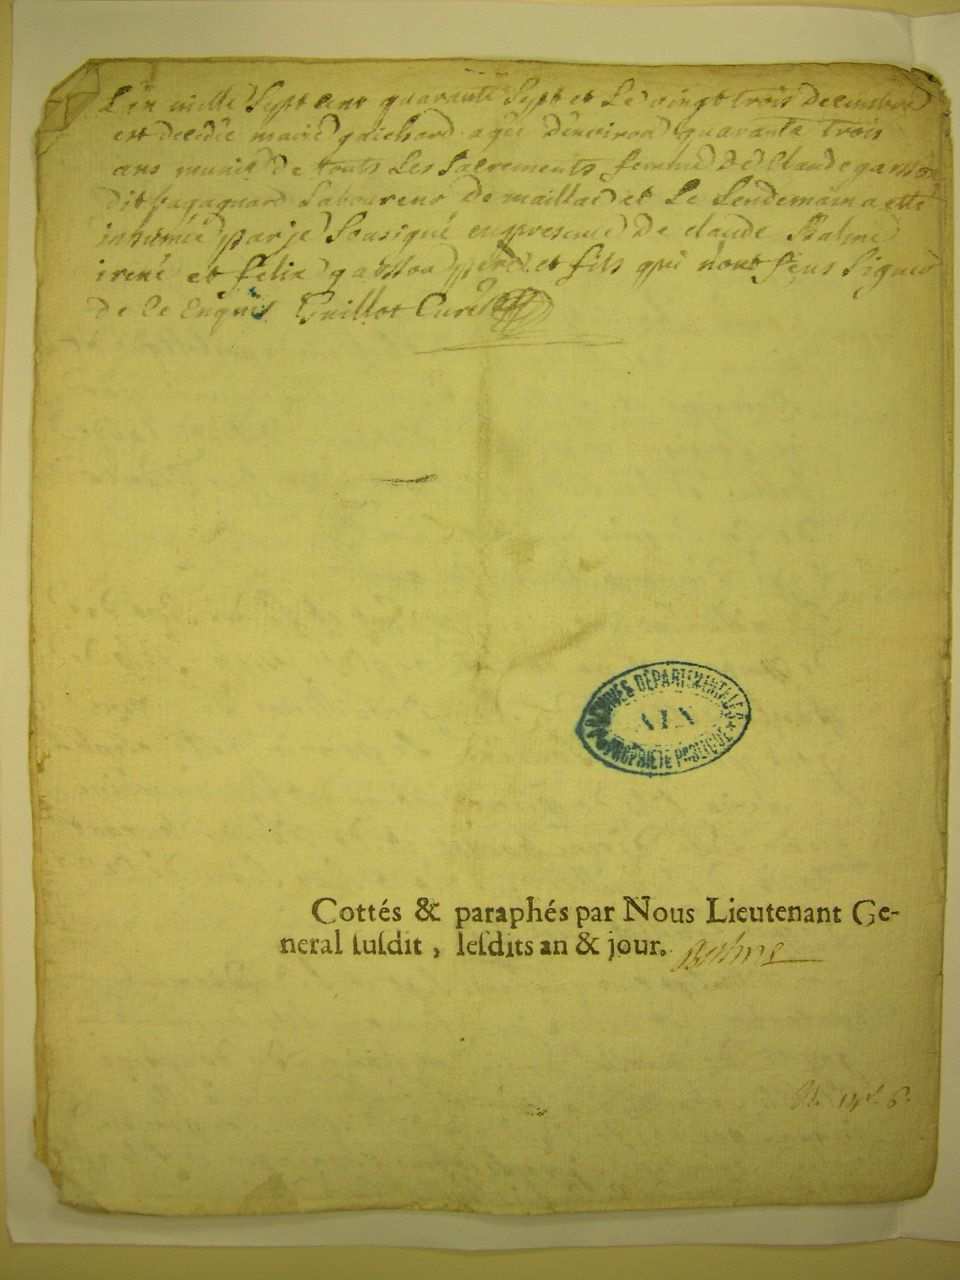 L'an mille Sept cent quarante Sept et Le vingt trois decembre
est decedée marie gaichard agée d'environ quarante trois
ans munie de touts Les Sacrements femme de Claude garsson
dit Laboureur de maillat et Le Lendemain a etté
inhumée par je Sousigné enpresence de claude Balme
irené et felix gasson pere et fils qui n'ont Sçus Signer
de ce Enquis Guillot Curé
ARCHIVES DÉPARTEMENTALES
AIN
PROPRIÉTÉ PUBLIQUE
Cottés & paraphés par Nous Lieutenant Ge-
neral ſuſdit, leſdits an & jour. Balme